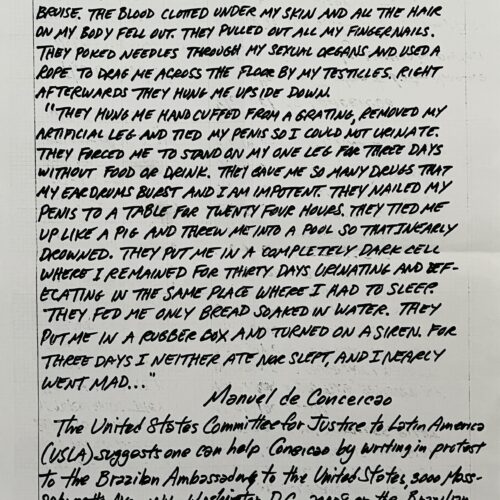 BRUISE. THE BLOOD CLOTTED UNDER MY SKIN AND ALL THE HAIR
ON MY BODY FELL OUT. THEY PULLED OUT ALL MY FINGERNAILS.
THEY POKED NEEDLES THROUGH MY SEXUAL ORGANS AND USED A
ROPE TO DRAG ME ACROSS THE FLOOR BY MY TESTICLES. RIGHT
AFTERWARDS THEY HUNG ME UPSIDE DOWN.
"THEY HUNG ME HANDCUFFED FROM A GRATING, REMOVED MY
ARTIFICIAL LEG AND TIED MY PENIS SO I COULD NOT URINATE.
THEY FORCED ME TO STAND ON MY ONE LEG FOR THREE DAYS
WITHOUT FOOD OR DRINK. THEY GAVE ME SO MANY DRUGS THAT
MY EARDRUMS BURST AND I AM IMPOTENT. THEY NAILED MY
PENIS TO A TABLE FOR TWENTY FOUR HOURS. THEY TIED ME
UP LIKE A PIG AND THREW ME INTO A POOL SO THAT I NEARLY
DROWNED. THEY PUT ME IN A COMPLETELY DARK CELL
WHERE I REMAINED FOR THIRTY DAYS URINATING AND DEF-
ECATING IN THE SAME PLACE WHERE I HAD TO SLEEP.
THEY FED ME ONLY BREAD SOAKED IN WATER. THEY
PUT ME IN A RUBBER BOX AND TURNED ON A SIREN. FOR
THREE DAYS I NEITHER ATE NOR SLEPT, AND I NEARLY
WENT MAD..."
Manuel de Conceicao
The United States Committee for Justice to Latin America
(USLA) suggests one can help Conceicao by writing in protest
to the Brazilian Ambassador to the United States, 3000 Mass-